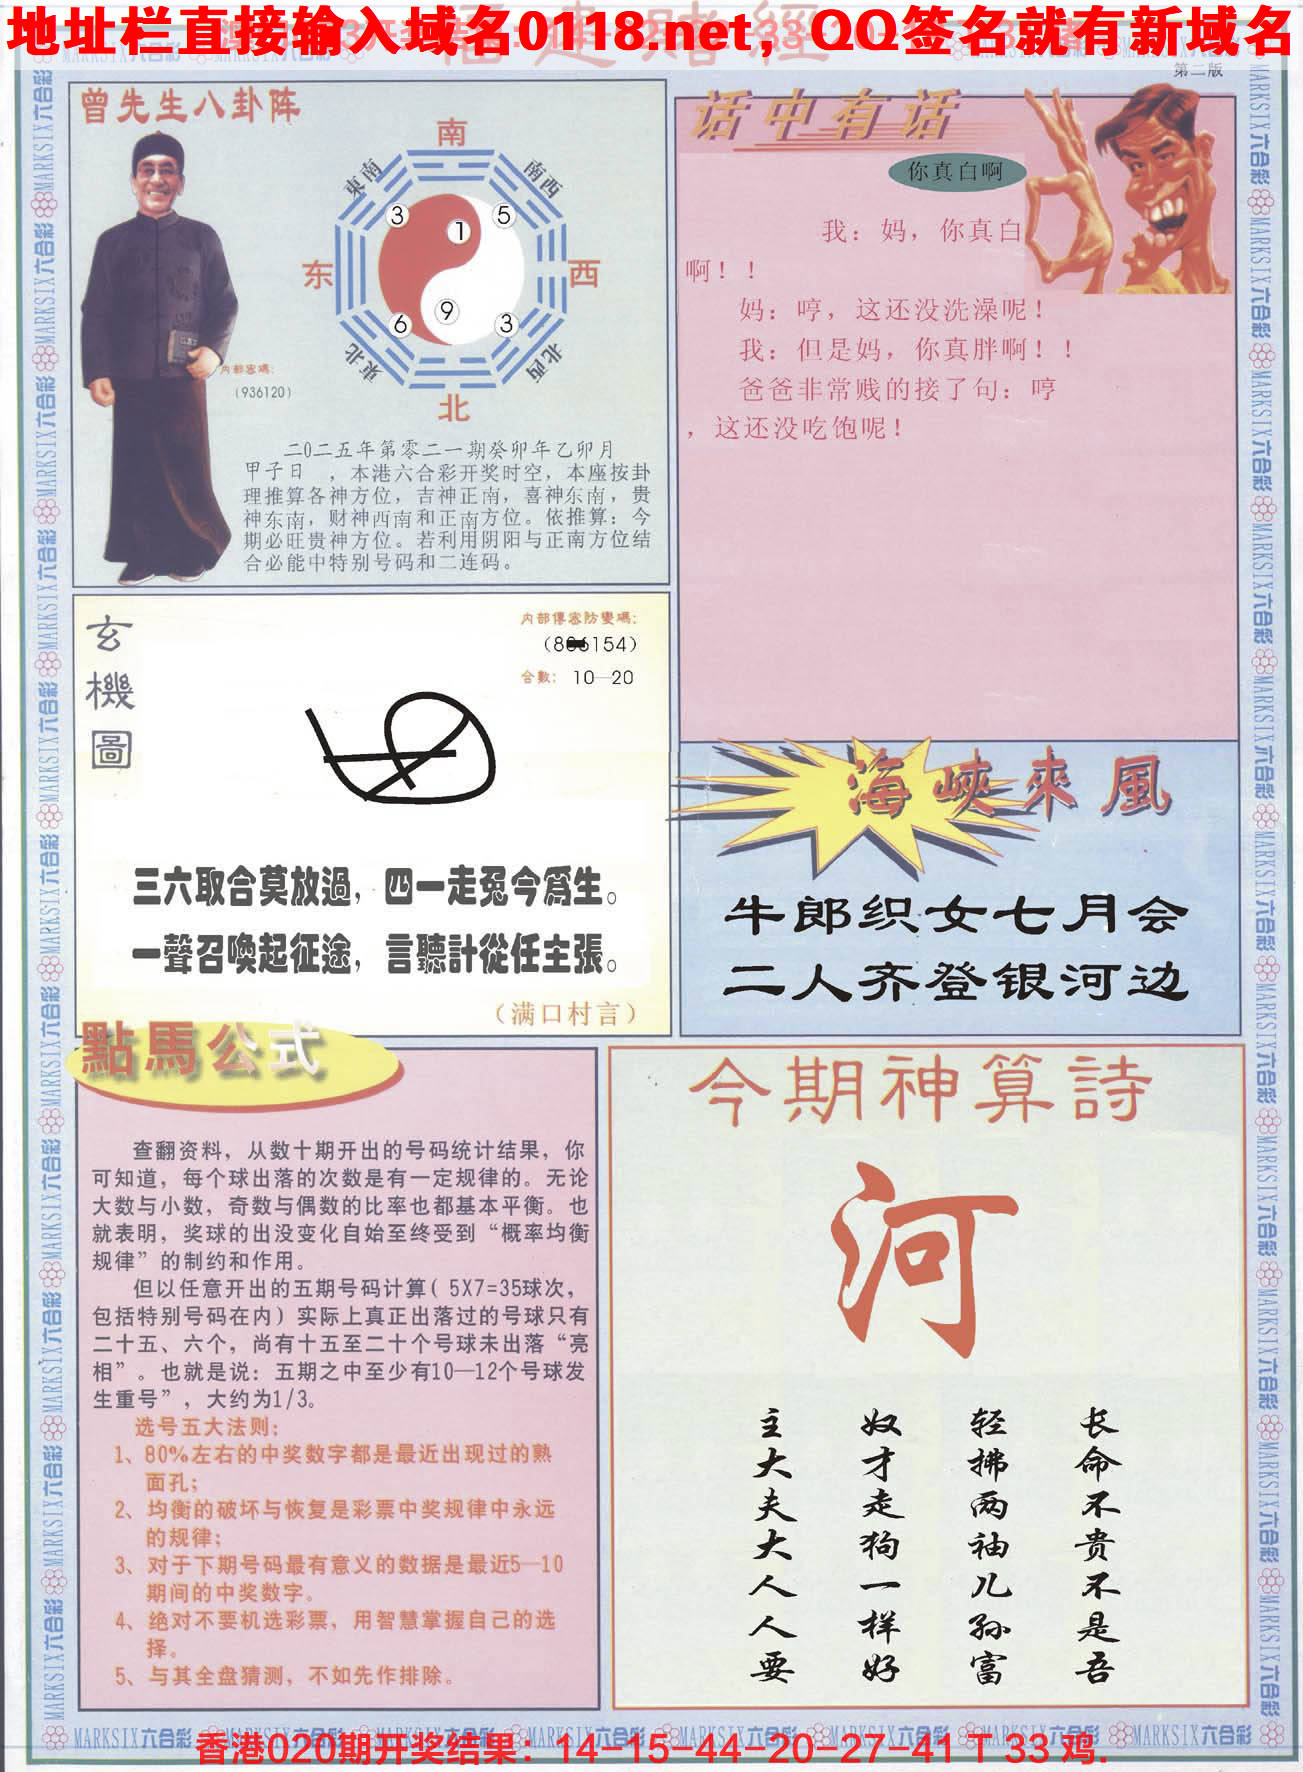 地址栏直接输入域名0118.net，QQ签名就有新域名
福建赌經
第二版
曾先生八卦阵
南
東南
南西
3
5
1
东
西
9
6
3
東北
北西
北
内部密碼:
(936120)
二0二五年第零二一期癸卯年乙卯月
甲子日　，本港六合彩开奖时空，本座按卦
理推算各神方位，吉神正南，喜神东南，贵
神东南，财神西南和正南方位。依推算：今
期必旺贵神方位。若利用阴阳与正南方位结
合必能中特别号码和二连码。
话中有话
你真白啊
我：妈，你真白
啊！！
妈：哼，这还没洗澡呢！
我：但是妈，你真胖啊！！
爸爸非常贱的接了句：哼
，这还没吃饱呢！
玄機圖
内部傳密防變碼:
合數: 10—20
三六取合莫放過，四一走冤今爲生。
一聲召喚起征途，言聽計從任主張。
（满口村言）
海峽來風
牛郎织女七月会
二人齐登银河边
點馬公式
查翻资料，从数十期开出的号码统计结果，你
可知道，每个球出落的次数是有一定规律的。无论
大数与小数，奇数与偶数的比率也都基本平衡。也
就表明，奖球的出没变化自始至终受到“概率均衡
规律”的制约和作用。
但以任意开出的五期号码计算( 5X7=35球次，
包括特别号码在内）实际上真正出落过的号球只有
二十五、六个，尚有十五至二十个号球未出落“亮
相”。也就是说：五期之中至少有10—12个号球发
生重号”，大约为1/3。
选号五大法则:
1、80%左右的中奖数字都是最近出现过的熟
面孔;
2、均衡的破坏与恢复是彩票中奖规律中永远
的规律;
3、对于下期号码最有意义的数据是最近5—10
期间的中奖数字。
4、绝对不要机选彩票，用智慧掌握自己的选
择。
5、与其全盘猜测，不如先作排除。
今期神算詩
河
长命不贵不是吾
轻拂两袖儿孙富
奴才走狗一样好
主大夫大人人要
MARKSIX六合彩
香港020期开奖结果：14-15-44-20-27-41 T 33 鸡.